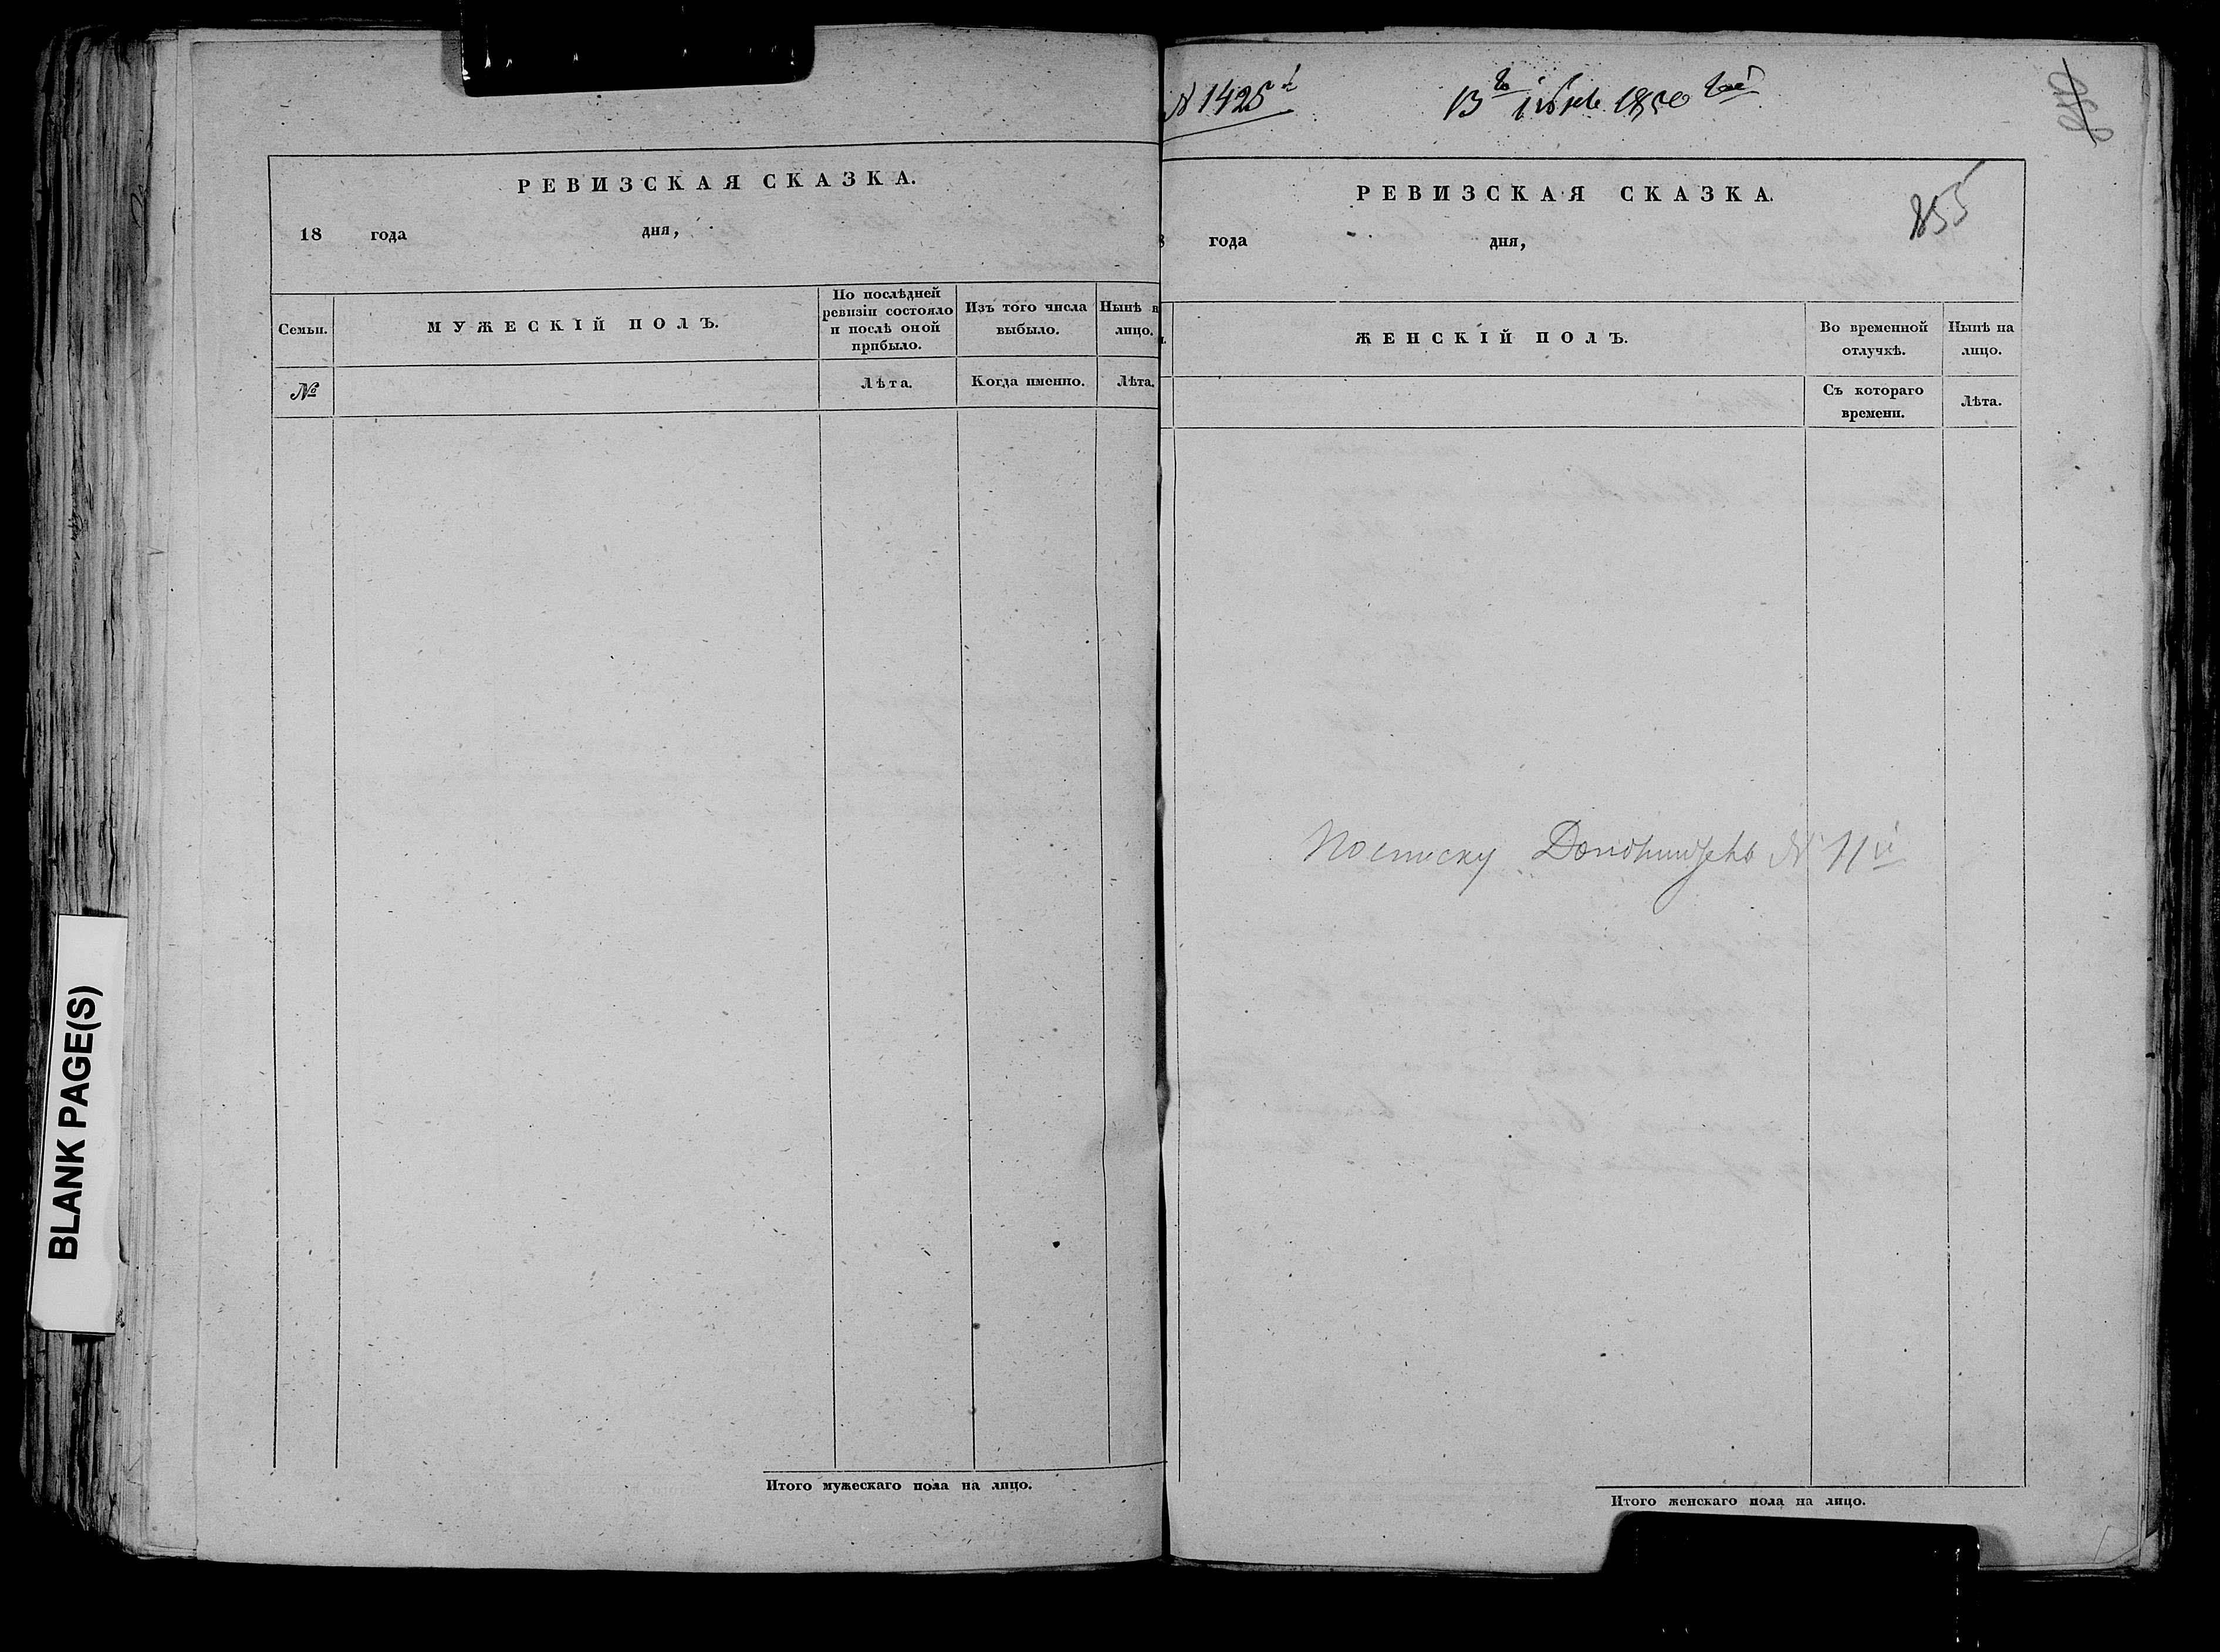 РЕВИЗСКАЯ СКАЗКА.
18 года дня,
Семьи.
МУЖЕСКІЙ ПОЛЪ.
По послѣдней ревизіи состояло и послѣ оной прибыло.
Изъ того числа выбыло.
Нынѣ н лицо.
№
Лѣта.
Когда именно.
Лѣта.
Итого мужескаго пола на лицо.
N 1425
13 1850
855
РЕВИЗСКАЯ СКАЗКА.
года дня,
ЖЕНСКІЙ ПОЛЪ.
Во временной отлучкѣ.
Нынѣ на лицо.
Съ котораго времени.
Лѣта.
По списку N 11й
Итого женскаго пола на лицо.
BLANK PAGE(S)